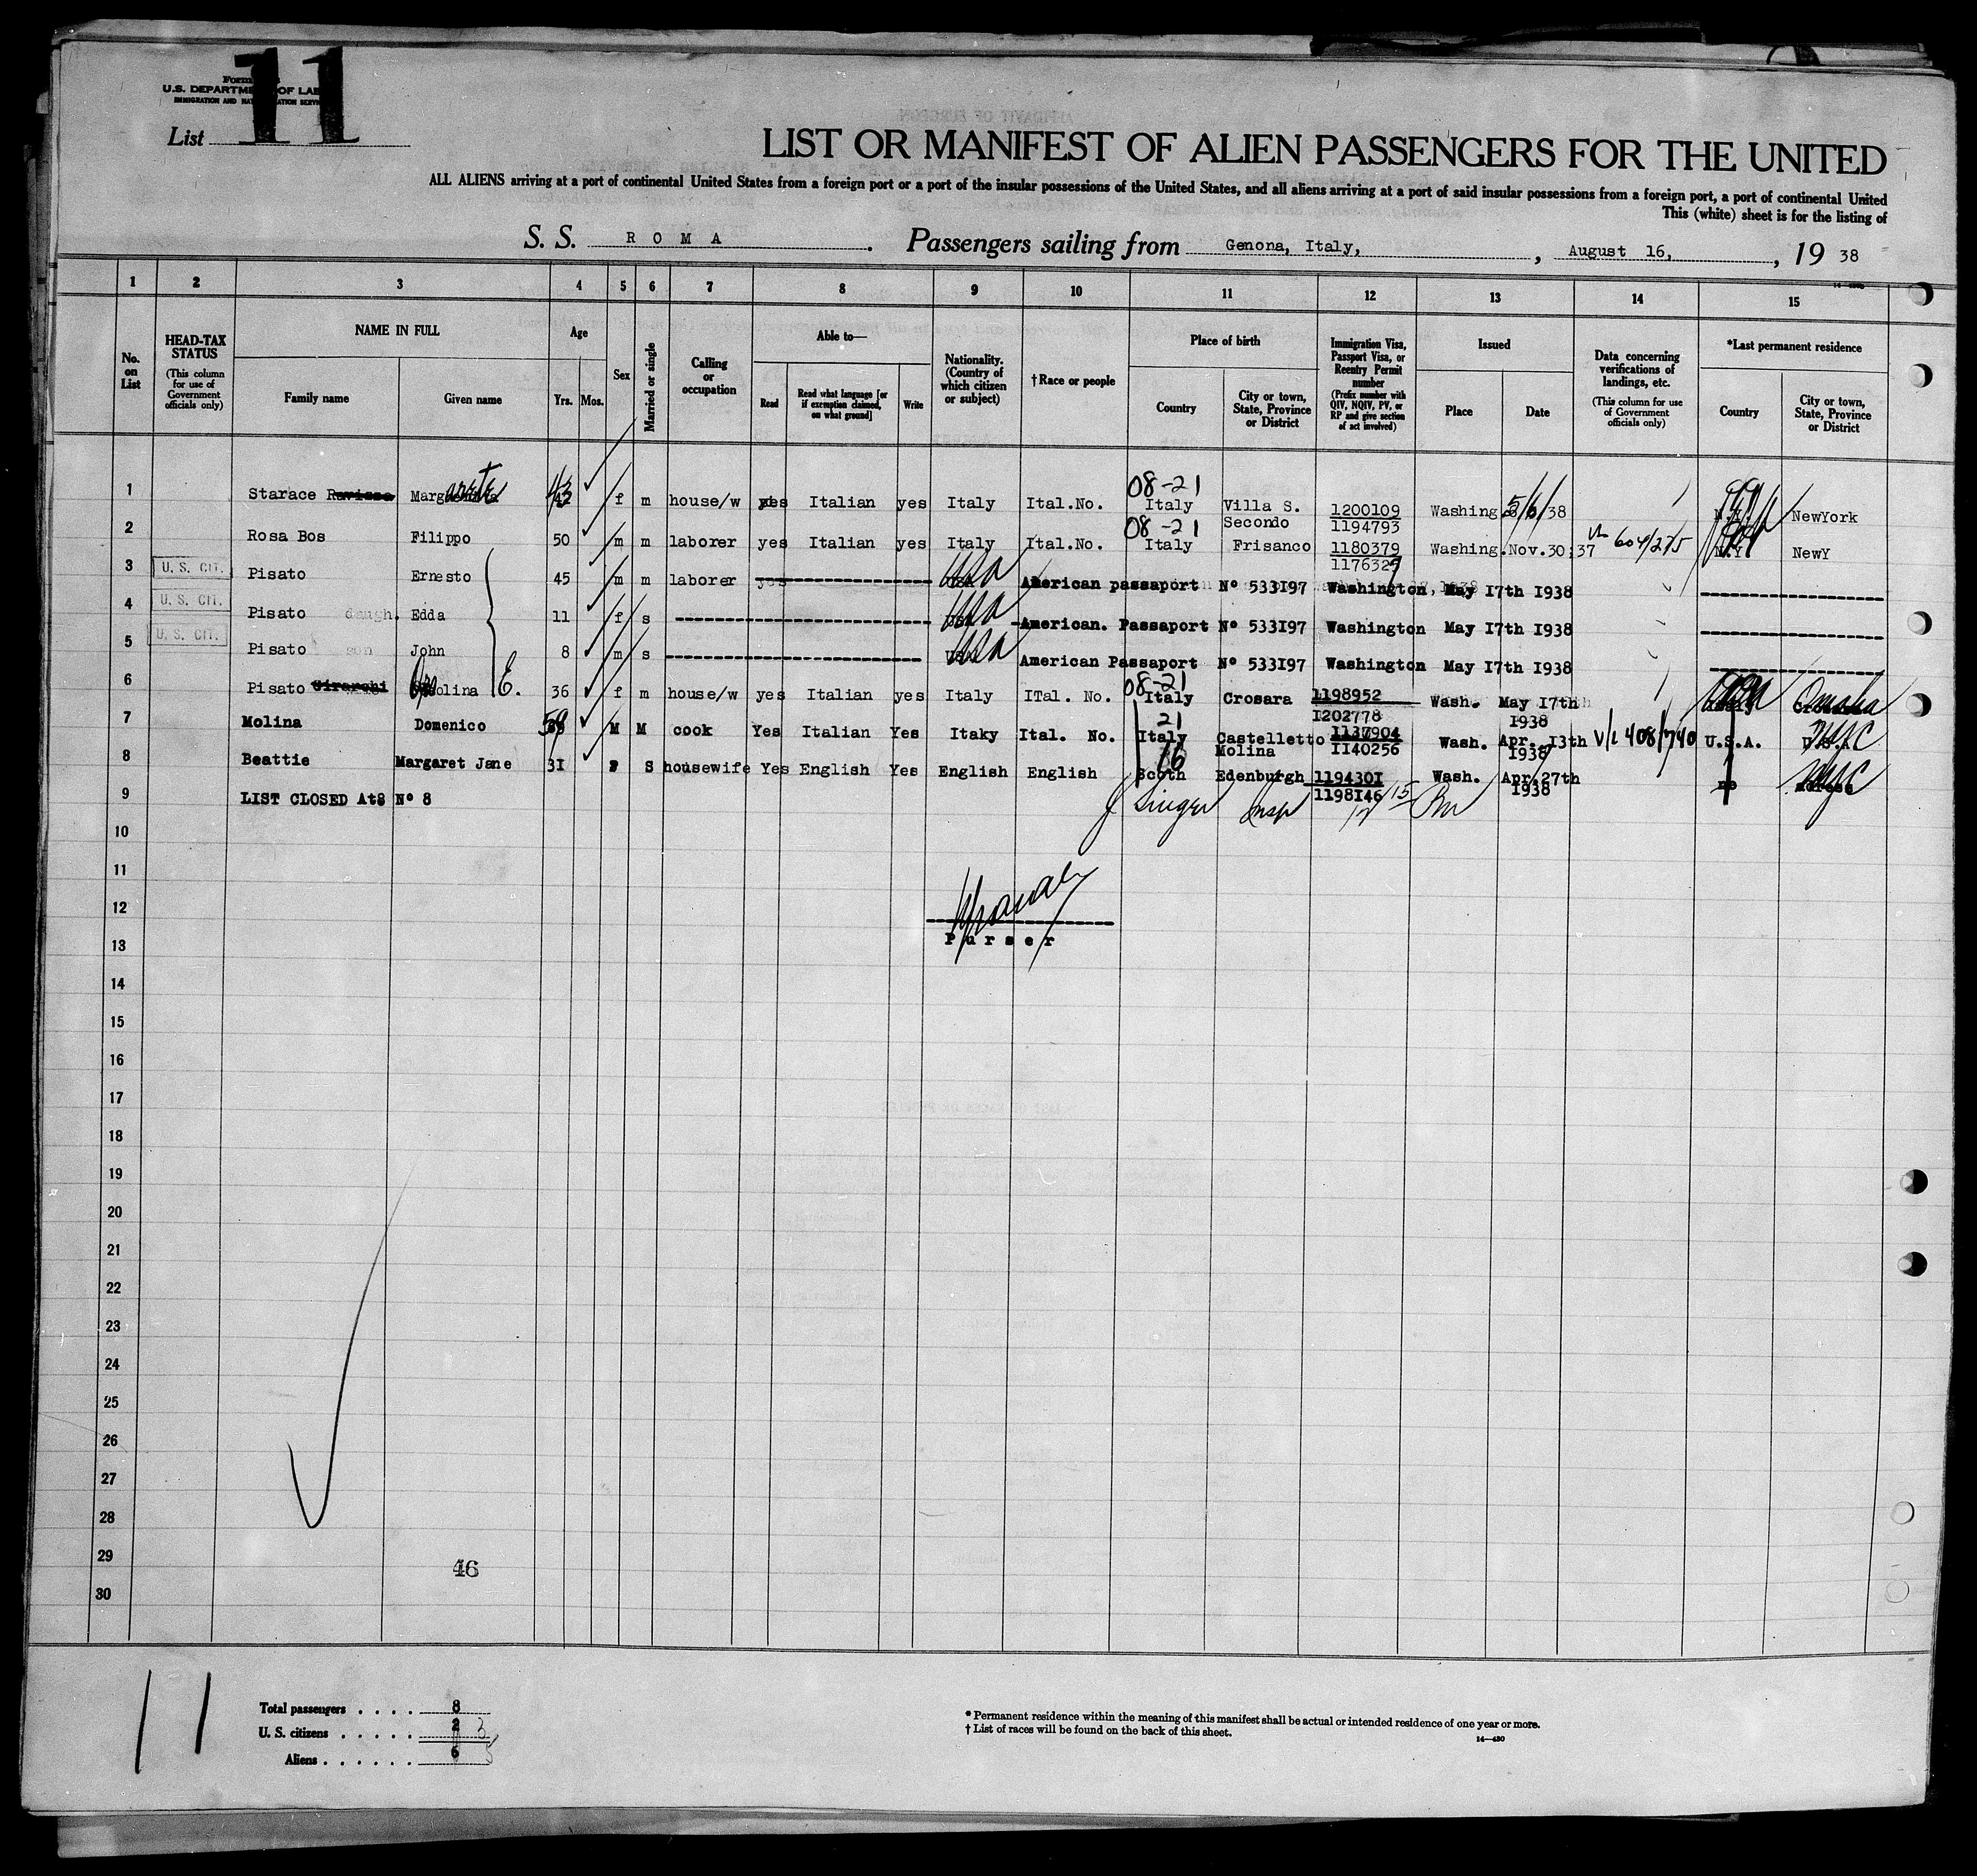 11
U.S. DEPARTMENT OF LAB
IMMIGRATION AND NATURALIZATION SERVICE
List
LIST OR MANIFEST OF ALIEN PASSENGERS FOR THE UNITED
ALL ALIENS arriving at a port of continental United States from a foreign port or a port of the insular possessions of the United States, and all aliens arriving at a port of said insular possessions from a foreign port, a port of continental United
This (white) sheet is for the listing of
S. S. ROMA. Passengers sailing from Genona, Italy, , August 16, , 19 38
1 2 3 4 5 6 7 8 9 10 11 12 13 14 15
No. on List
HEAD-TAX STATUS
(This column for use of Government officials only)
NAME IN FULL
Family name Given name
Age
Yrs. Mos.
Sex
Married or single
Calling or occupation
Able to—
Read
Read what language [or if exemption claimed, on what ground]
Write
Nationality. (Country of which citizen or subject)
†Race or people
Place of birth
Country
City or town, State, Province or District
Immigration Visa, Passport Visa, or Reentry Permit number
(Prefix number with QIV, NQIV, PV, or RP and give section of act involved)
Issued
Place Date
Data concerning verifications of landings, etc.
(This column for use of Government officials only)
*Last permanent residence
Country
City or town, State, Province or District
08-21
1 Starace f m house/w yes Italian yes Italy Ital.No. Italy Villa S. Secondo 1200109 1194793 Washing 5/6/38 NewYork
08-21
2 Rosa Bos Filippo 50 m m laborer yes Italian yes Italy Ital.No. Italy Frisanco 1180379 1176327 Washing.Nov.30;37 604/275 N.Y NewY
3 U. S. CIT. Pisato Ernesto 45 m m laborer USA American passaport Nº 533197 Washington, May 17th 1938
4 U. S. CIT. Pisato daugh. Edda 11 f s USA American. Passaport Nº 533197 Washington May 17th 1938
5 U. S. CIT. Pisato son John 8 m s USA American Passaport Nº 533197 Washington May 17th 1938
08-21
6 Pisato E. 36 f m house/w yes Italian yes Italy ITal. No. Italy Crosara 1198952 1202778 Wash. May 17th 1938 Omaha
21
7 Molina Domenico 59 M M cook Yes Italian Yes Itaky Ital. No. Italy Castelletto Molina 1137904 1140256 Wash. Apr. 13th 1938 V/L 408/740 U.S.A. NYC
16
8 Beattie Margaret Jane 31 F S housewife Yes English Yes English English Scoth Edenburgh 1194301 1198146 Wash. Apr.27th 1938 no NYC
9 LIST CLOSED At8 Nº 8
J Singer Insp
10
11
12
Purser
13
14
15
16
17
18
19
20
21
22
23
24
25
26
27
28
29
46
30
11
Total passengers . . . . 8
U. S. citizens . . . . . 2 3
Aliens . . . . . . 6 5
* Permanent residence within the meaning of this manifest shall be actual or intended residence of one year or more.
† List of races will be found on the back of this sheet.
14—430